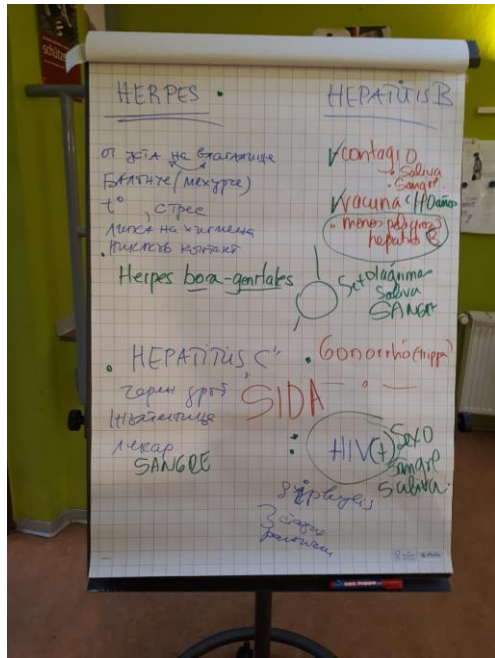 schütze
HERPES
от уста на влагалище
(мехурче)
t°, стрес
липса на хигиена
контакт
Herpes bora-genitales
HEPATITIS B
✓contagio
→ Saliva
• Sangre
✓vacuna años
• menos peligroso
hepatitis B
Sexo lágrimas
Saliva
SANGRE
• HEPATITIS "C"
черен дроб
лекар
SANGRE
• Gonorrhö (Tripper)
SIDA
HIV(+)
Sexo
Sangre
Saliva
3